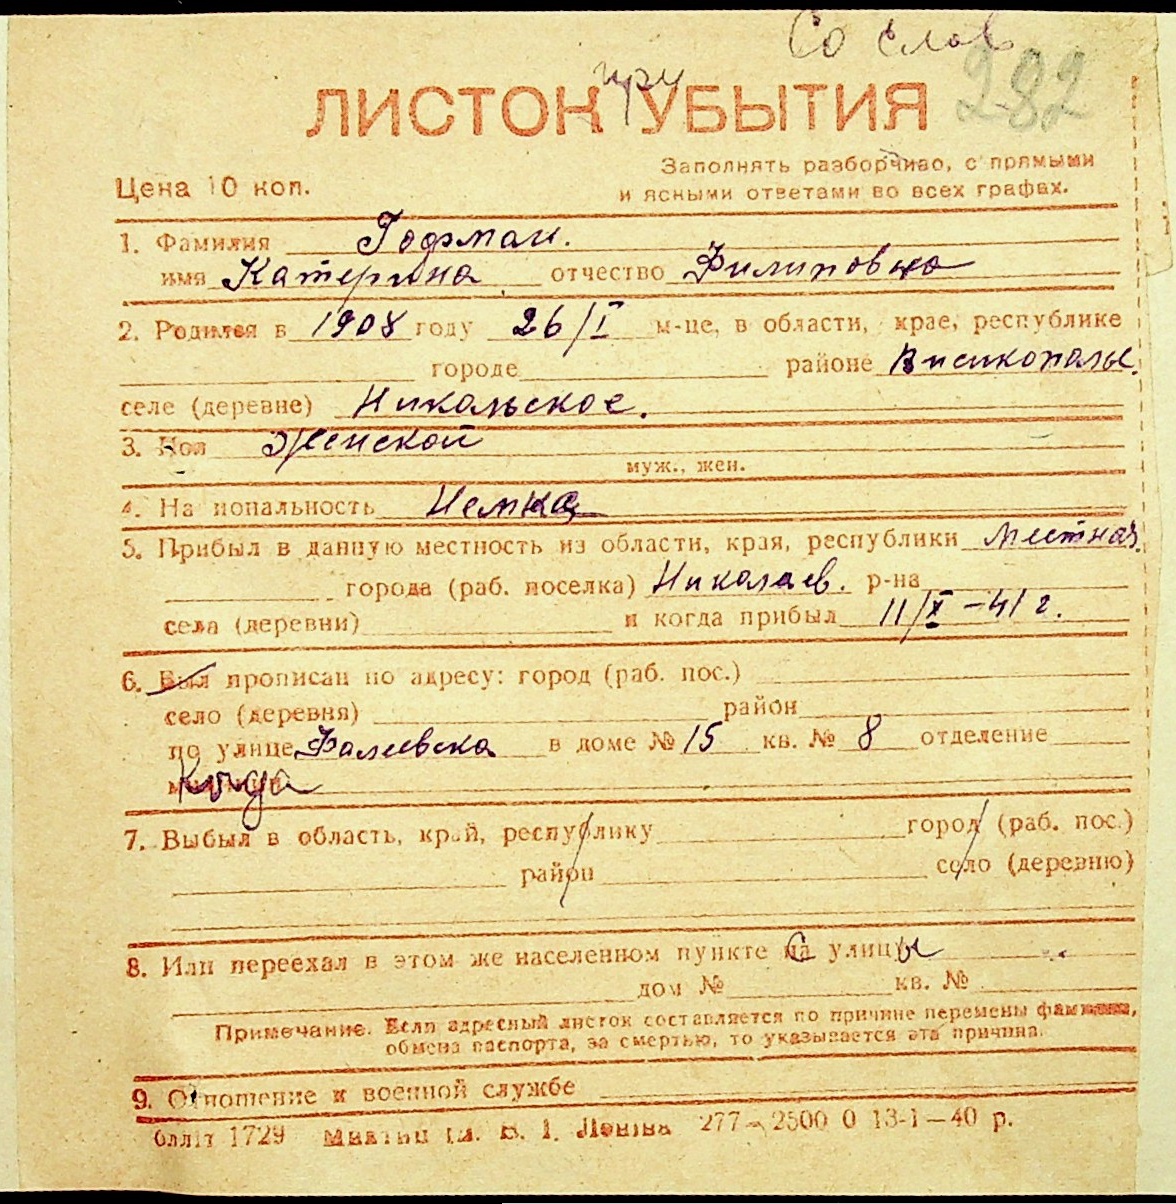 Со слов
282
при
ЛИСТОК УБЫТИЯ
Заполнять разборчиво, с прямыми
Цена 10 коп.
и ясными ответами во всех графах.
1. Фамилия Гофман.
имя Катерина отчество Филиповна
2. Родился в 1908 году 26/I м-це, в области, крае, республике
городе районе Висикополье.
селе (деревне) Никольское.
3. Пол Женской
муж., жен.
4. На иональность Немка
5. Прибыл в данную местность из области, края, республики местная
города (раб. поселка) Николаев. р-на
села (деревни) и когда прибыл 11/X-41 г.
6. Был прописан по адресу: город (раб. пос.)
село (деревня) район
по улице Фалеевска в доме № 15 кв. № 8 отделение
Куда
7. Выбыл в область, край, республику город (раб. пос.)
район село (деревню)
8. Или переехал в этом же населенном пункте с улицы
дом № кв. №
Примечание. Если адресный листок составляется по причине перемены фамилии,
обмена паспорта, за смертью, то указывается эта причина.
9. Отношение к военной службе
Облліт 1729 ім. В. І. Леніна 277—2500 0 13-1—40 р.